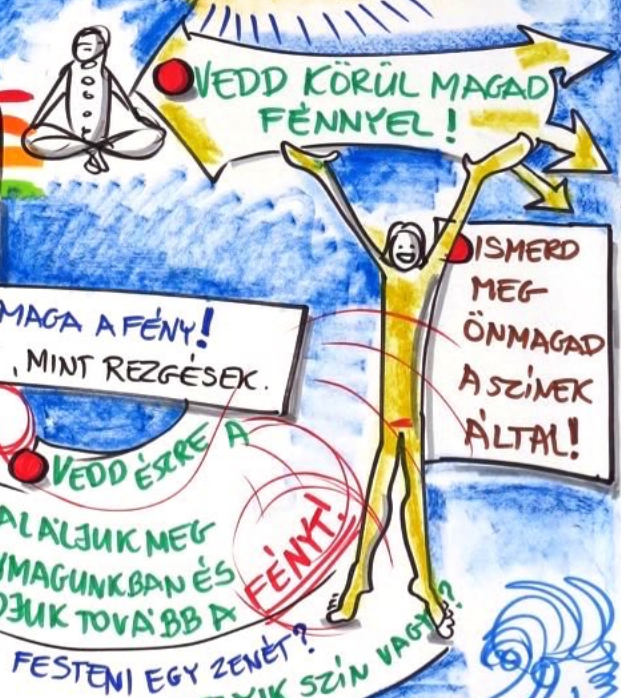 VEDD KÖRÜL MAGAD
FÉNNYEL!
ISMERD
MEG
ÖNMAGAD
A SZÍNEK
ÁLTAL!
MAGA A FÉNY!
, MINT REZGÉSEK.
VEDD ÉSZRE A
FÉNYT!
ALÁLJUK MEG
MAGUNKBAN ÉS
JUK TOVÁBB A
FESTENI EGY ZENÉT?
YIK SZÍN VAGY?